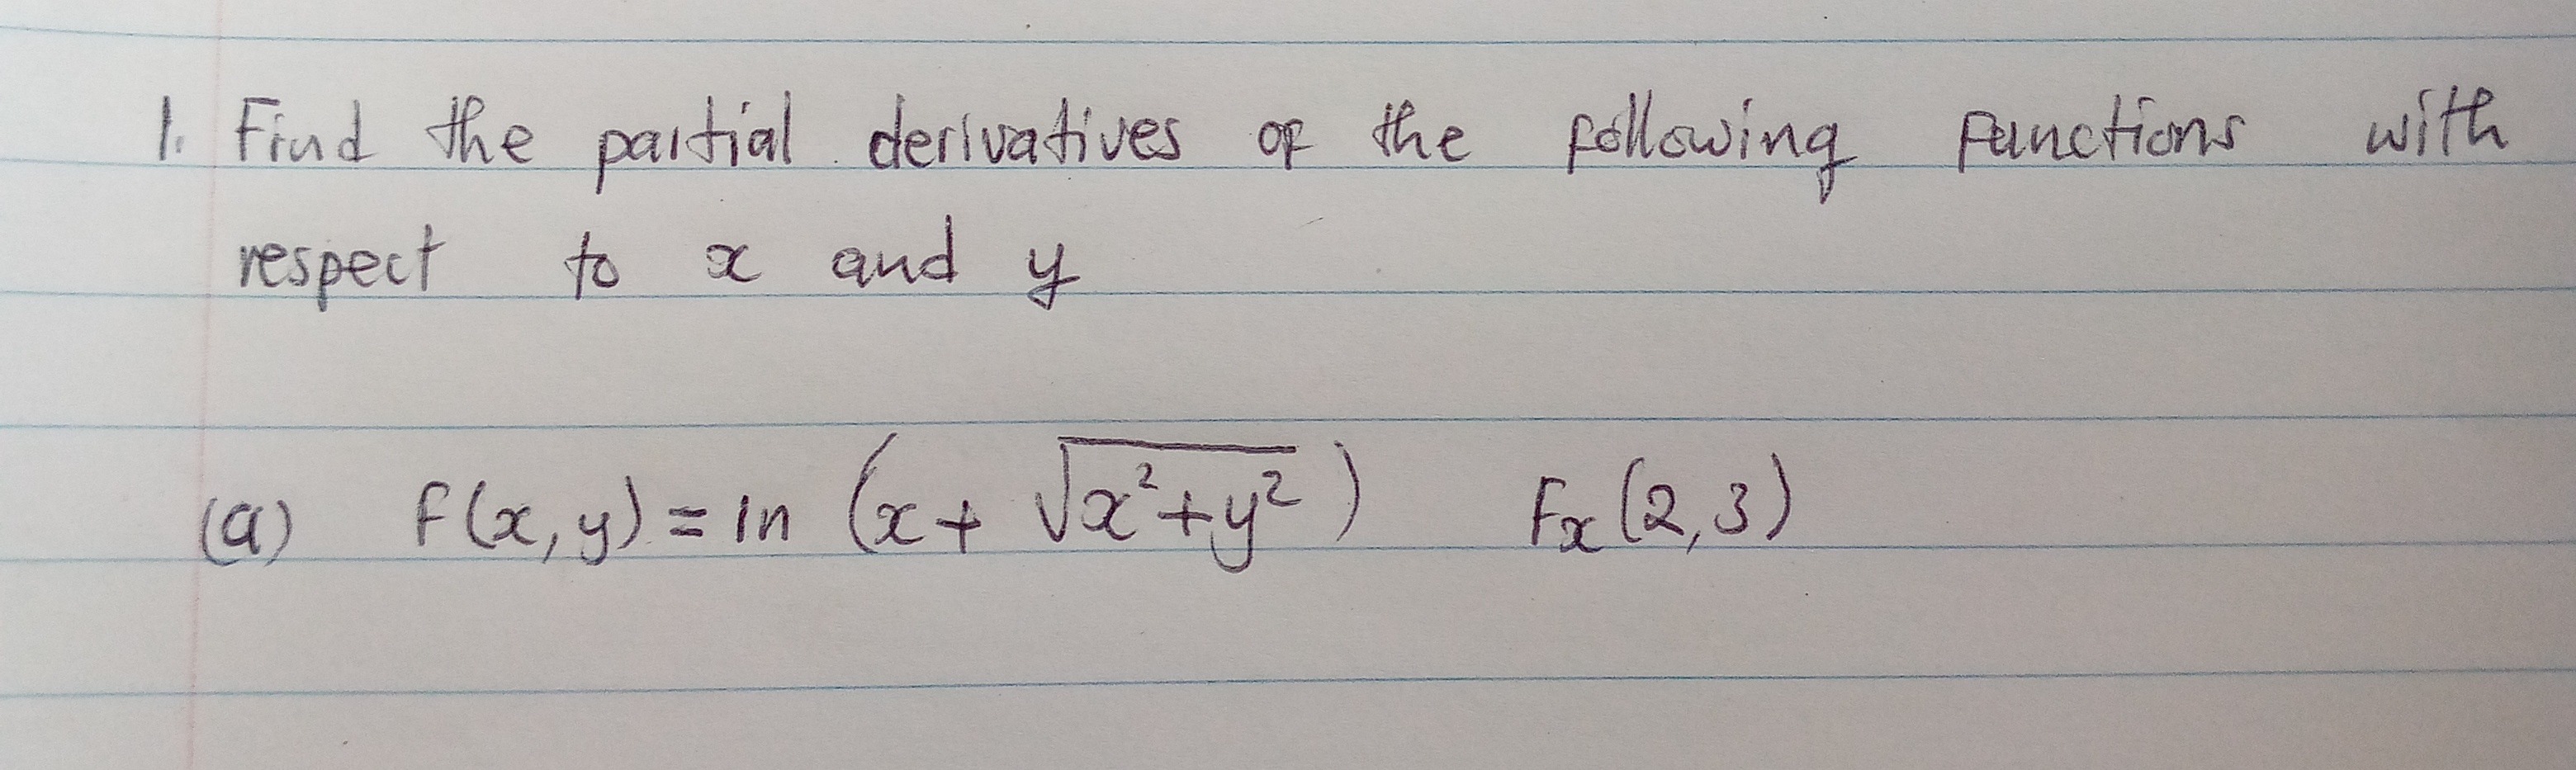 1. Find the partial derivatives of the following functions with
respect to x and y
(a) f(x,y) = ln (x + √(x²+y²)) Fx(2,3)